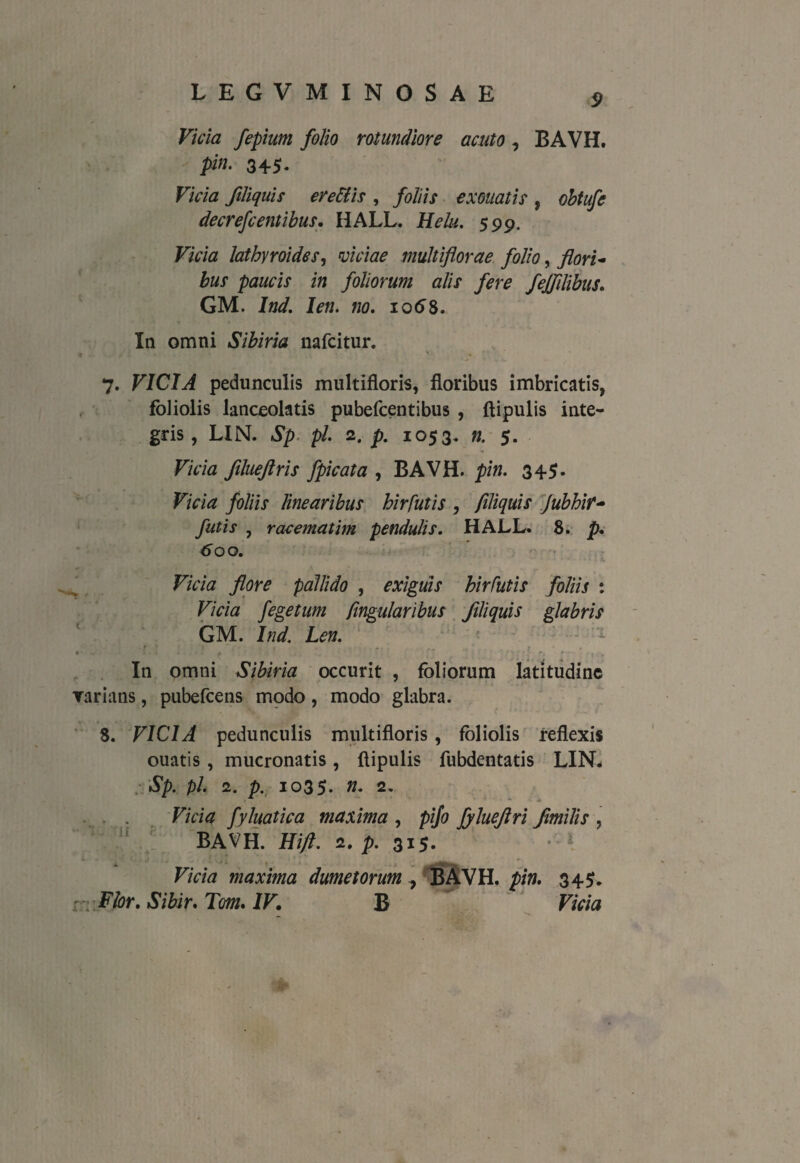 LEGVMINOSAE 9
Vicia ſepium folio rotundiore acuto, BAVH.
pin. 345.
Vicia ſiliquis erectis, foliis exouatis, obtuſe
decreſcentibus. HALL. Helu. 599.
Vicia lathyroides, viciae multiflorae folio, flori-
bus paucis in foliorum alis fere ſeſſilibus.
GM. Ind. len. no. 1068.
In omni Sibiria naſcitur.
7. VICIA pedunculis multifloris, floribus imbricatis,
foliolis lanceolatis pubeſcentibus, ſtipulis inte-
gris, LIN. Sp. pl. 2. p. 1053. n. 5.
Vicia ſilueſtris ſpicata, BAVH. pin. 345.
Vicia foliis linearibus hirſutis, ſiliquis ſubhir-
ſutis, racematim pendulis. HALL. 8. p.
600.
Vicia flore pallido, exiguis hirſutis foliis:
Vicia ſegetum ſingularibus ſiliquis glabris
GM. Ind. Len.
In omni Sibiria occurit, foliorum latitudine
varians, pubeſcens modo, modo glabra.
8. VICIA pedunculis multifloris, foliolis reflexis
ouatis, mucronatis, ſtipulis ſubdentatis LIN.
Sp. pl. 2. p. 1035. n. 2.
Vicia ſyluatica maxima, piſo ſylueſtri ſimilis,
BAVH. Hiſt. 2. p. 315.
Vicia maxima dumetorum, BAVH. pin. 345.
Flor. Sibir. Tom. IV. B Vicia